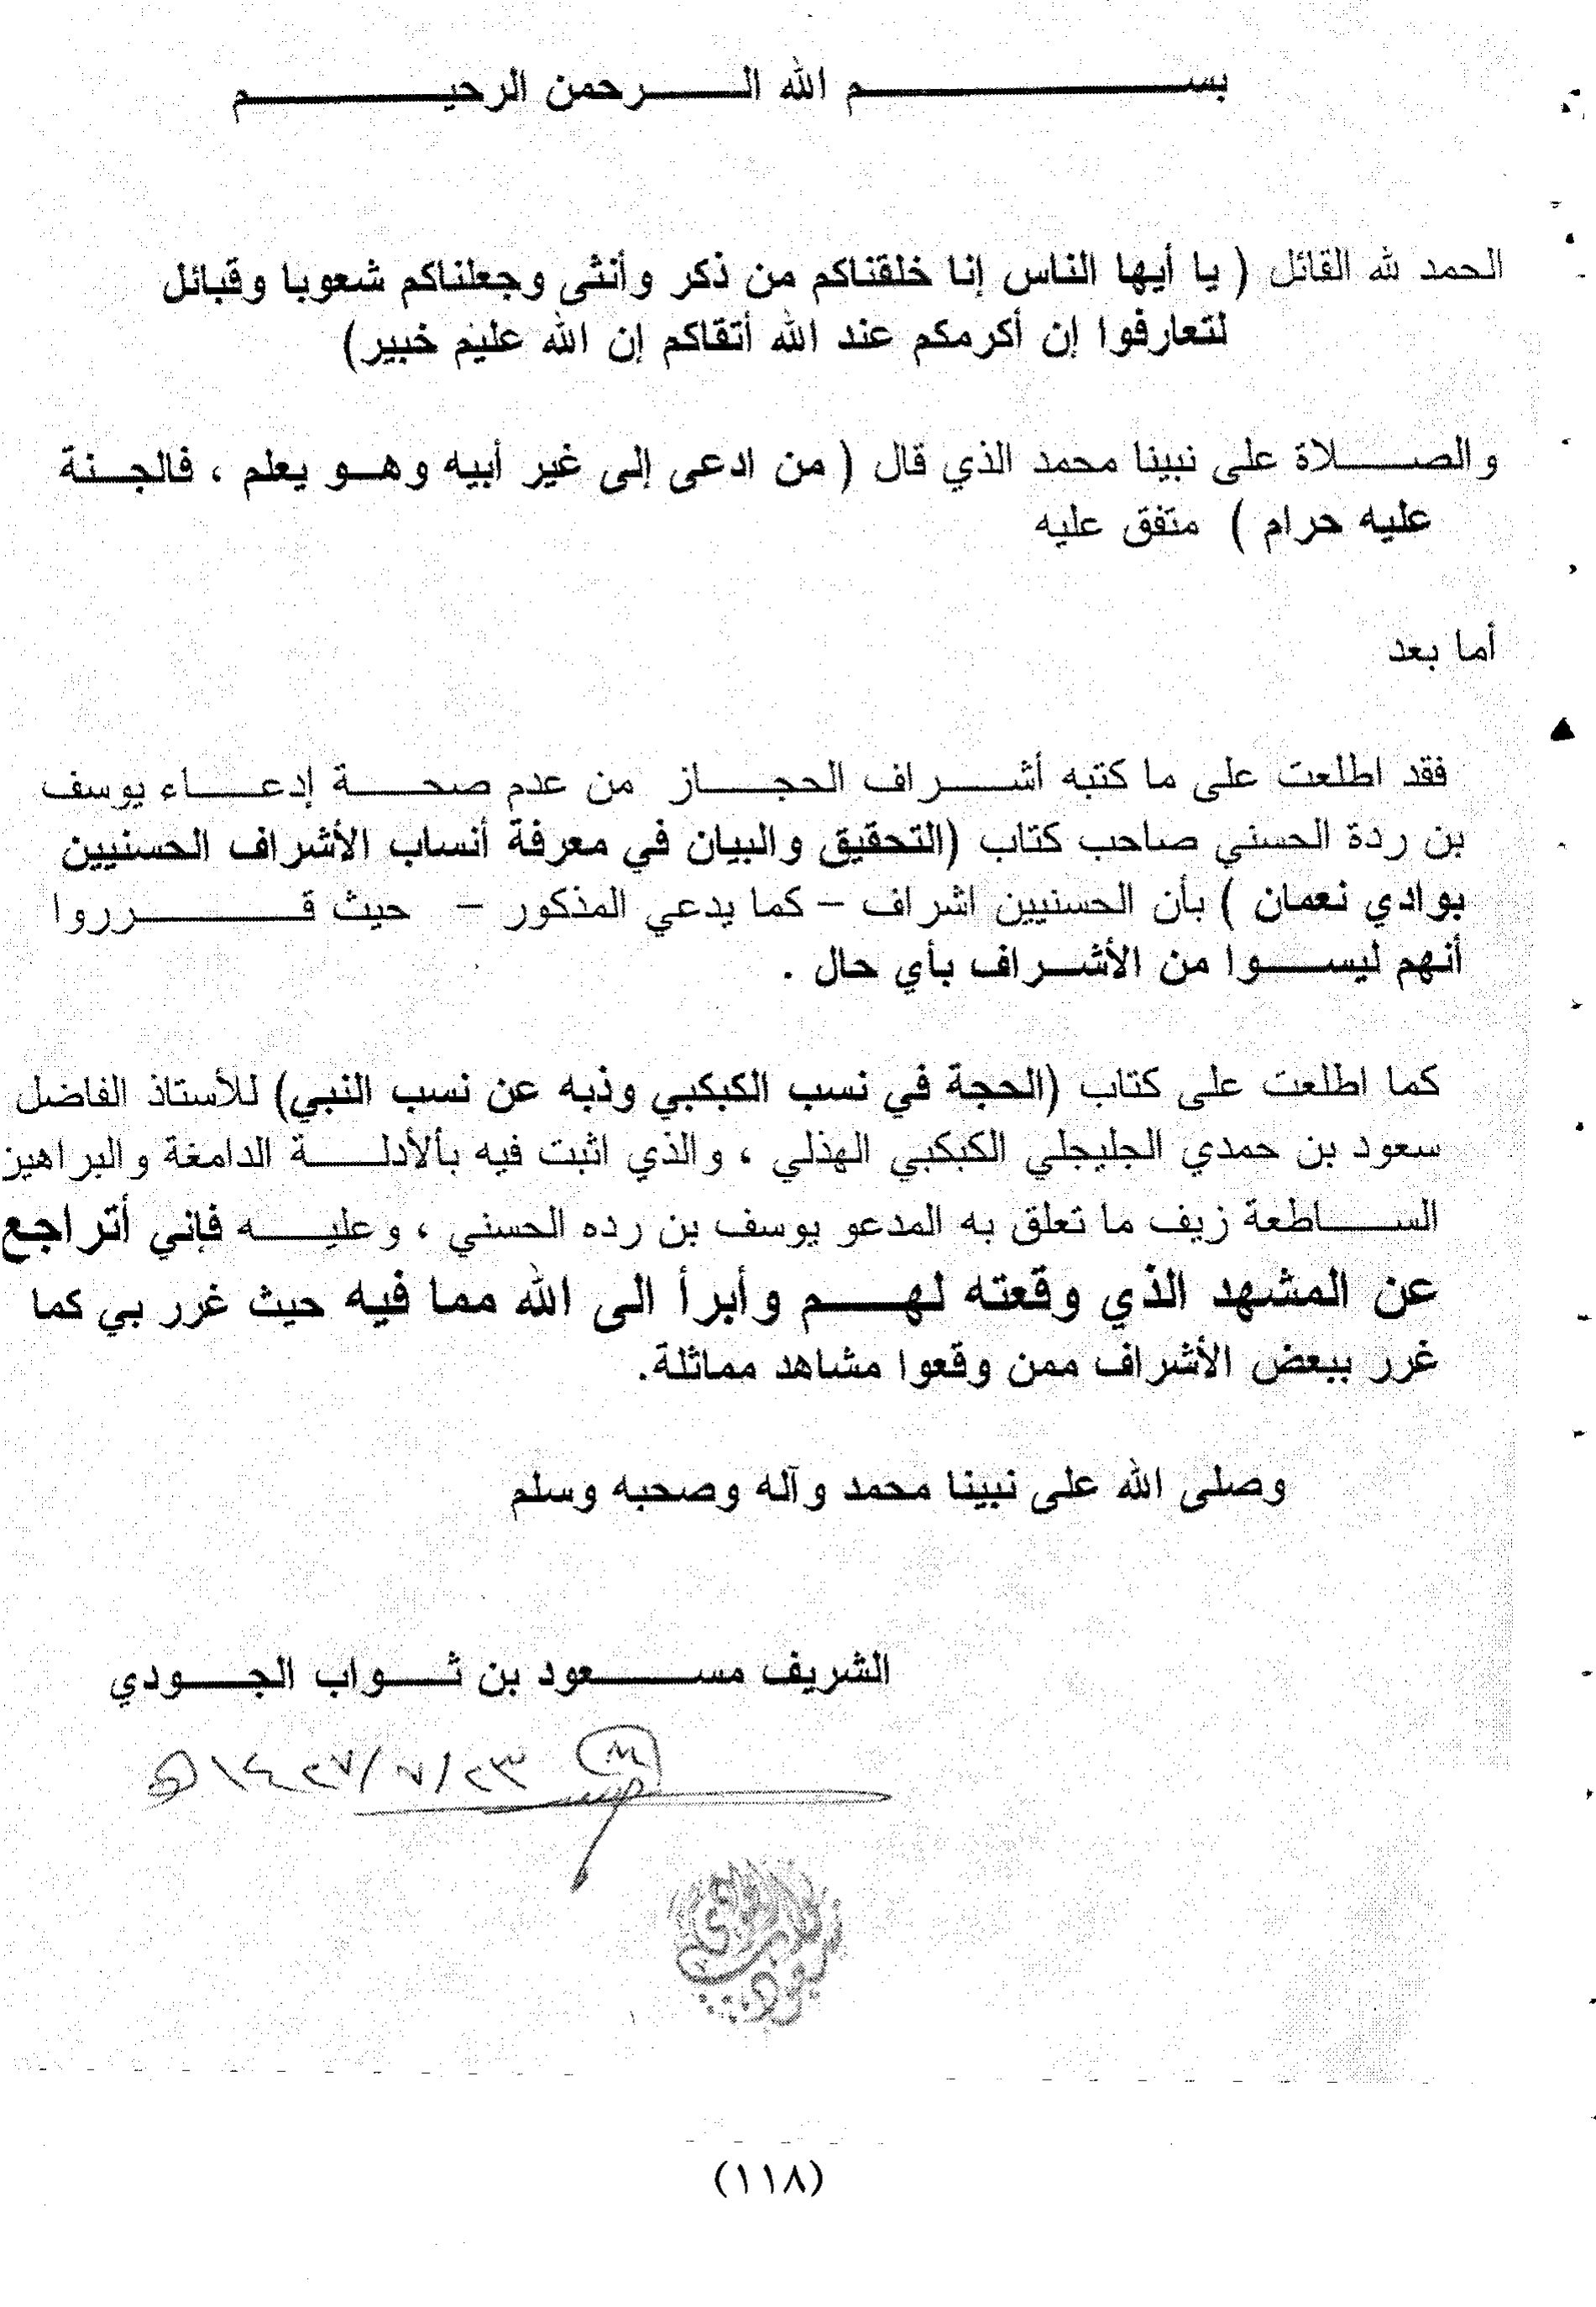 بسم الله الرحمن الرحيم
الحمد لله القائل ( يا أيها الناس إنا خلقناكم من ذكر وأنثى وجعلناكم شعوبا وقبائل
لتعارفوا إن أكرمكم عند الله أتقاكم إن الله عليم خبير)
والصلاة على نبينا محمد الذي قال ( من ادعى إلى غير أبيه وهو يعلم ، فالجنة
عليه حرام ) متفق عليه
أما بعد
فقد اطلعت على ما كتبه أشراف الحجاز من عدم صحة إدعاء يوسف
بن ردة الحسني صاحب كتاب (التحقيق والبيان في معرفة أنساب الأشراف الحسنيين
بوادي نعمان ) بأن الحسنيين اشراف – كما يدعي المذكور – حيث قرروا
أنهم ليسوا من الأشراف بأي حال .
كما اطلعت على كتاب (الحجة في نسب الكبكبي وذبه عن نسب النبي) للأستاذ الفاضل
سعود بن حمدي الجليجلي الكبكبي الهذلي ، والذي اثبت فيه بألأدلة الدامغة والبراهين
الساطعة زيف ما تعلق به المدعو يوسف بن رده الحسني ، وعليه فإني أتراجع
عن المشهد الذي وقعته لهم وأبرأ الى الله مما فيه حيث غرر بي كما
غرر ببعض الأشراف ممن وقعوا مشاهد مماثلة.
وصلى الله على نبينا محمد وآله وصحبه وسلم
الشريف مسعود بن ثواب الجودي
(١١٨)